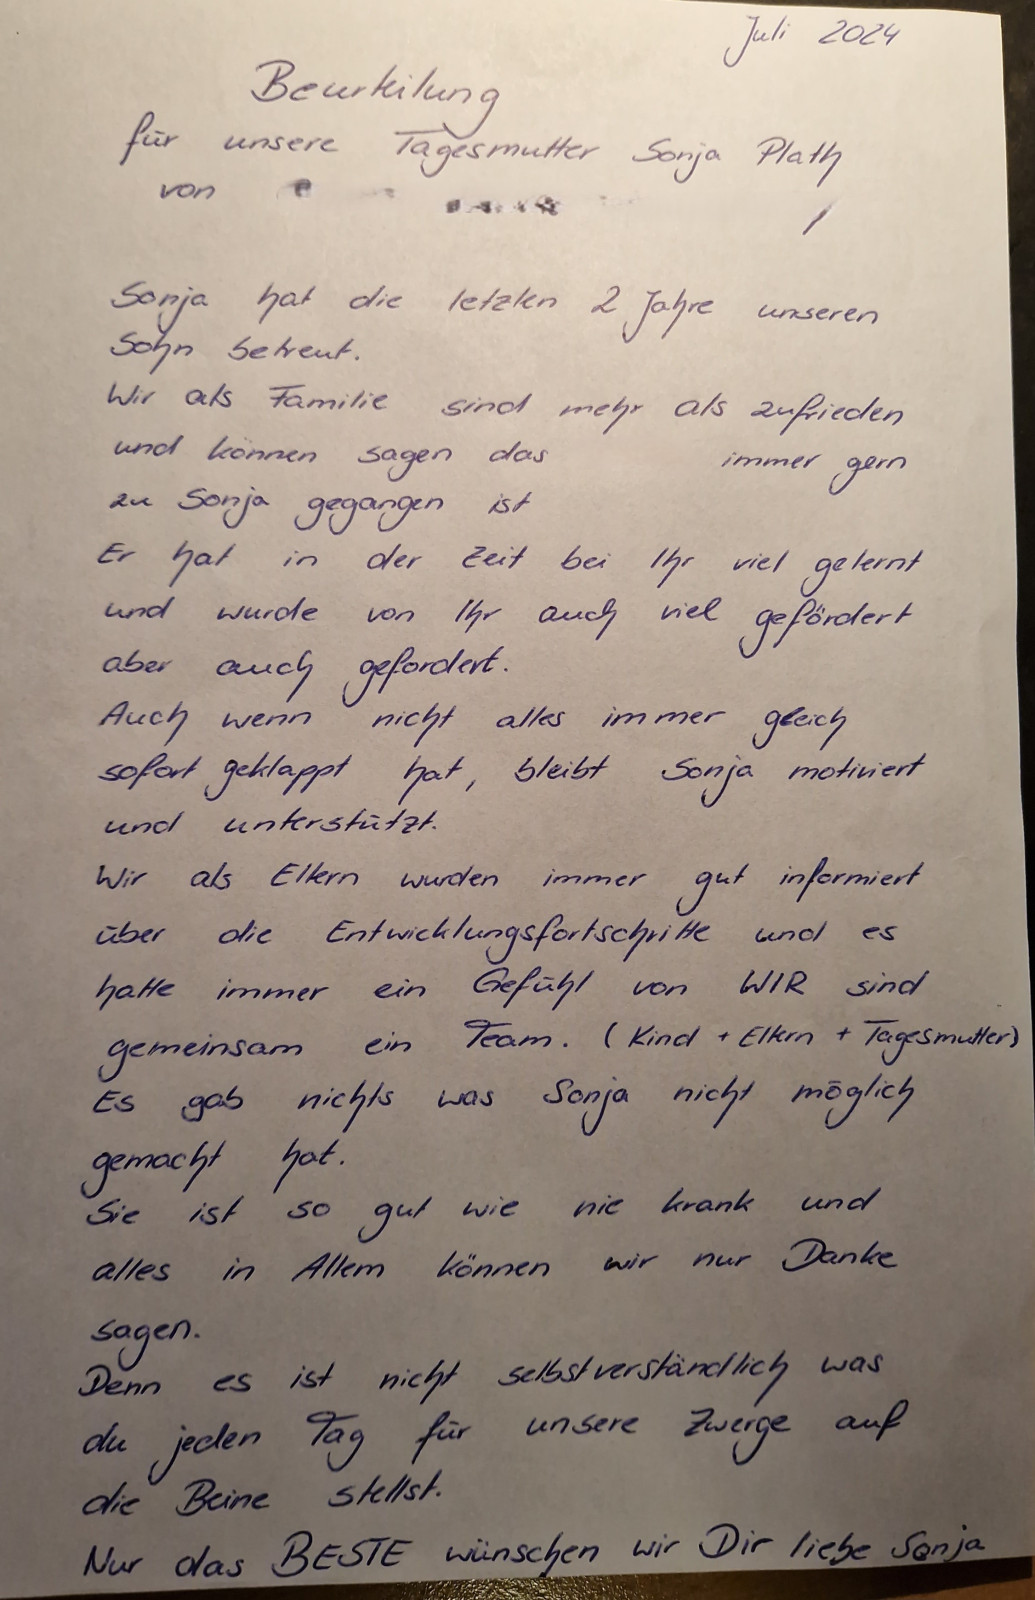 Juli 2024
Beurteilung
für unsere Tagesmutter Sonja Plath
von
Sonja hat die letzten 2 Jahre unseren
Sohn betreut.
Wir als Familie sind mehr als zufrieden
und können sagen das immer gern
zu Sonja gegangen ist
Er hat in der Zeit bei Ihr viel gelernt
und wurde von Ihr auch viel gefördert
aber auch gefordert.
Auch wenn nicht alles immer gleich
sofort geklappt hat, bleibt Sonja motiviert
und unterstützt.
Wir als Eltern wurden immer gut informiert
über die Entwicklungsfortschritte und es
hatte immer ein Gefühl von WIR sind
gemeinsam ein Team. (Kind + Eltern + Tagesmutter)
Es gab nichts was Sonja nicht möglich
gemacht hat.
Sie ist so gut wie nie krank und
alles in Allem können wir nur Danke
sagen.
Denn es ist nicht selbstverständlich was
du jeden Tag für unsere Zwerge auf
die Beine stellst.
Nur das BESTE wünschen wir Dir liebe Sonja